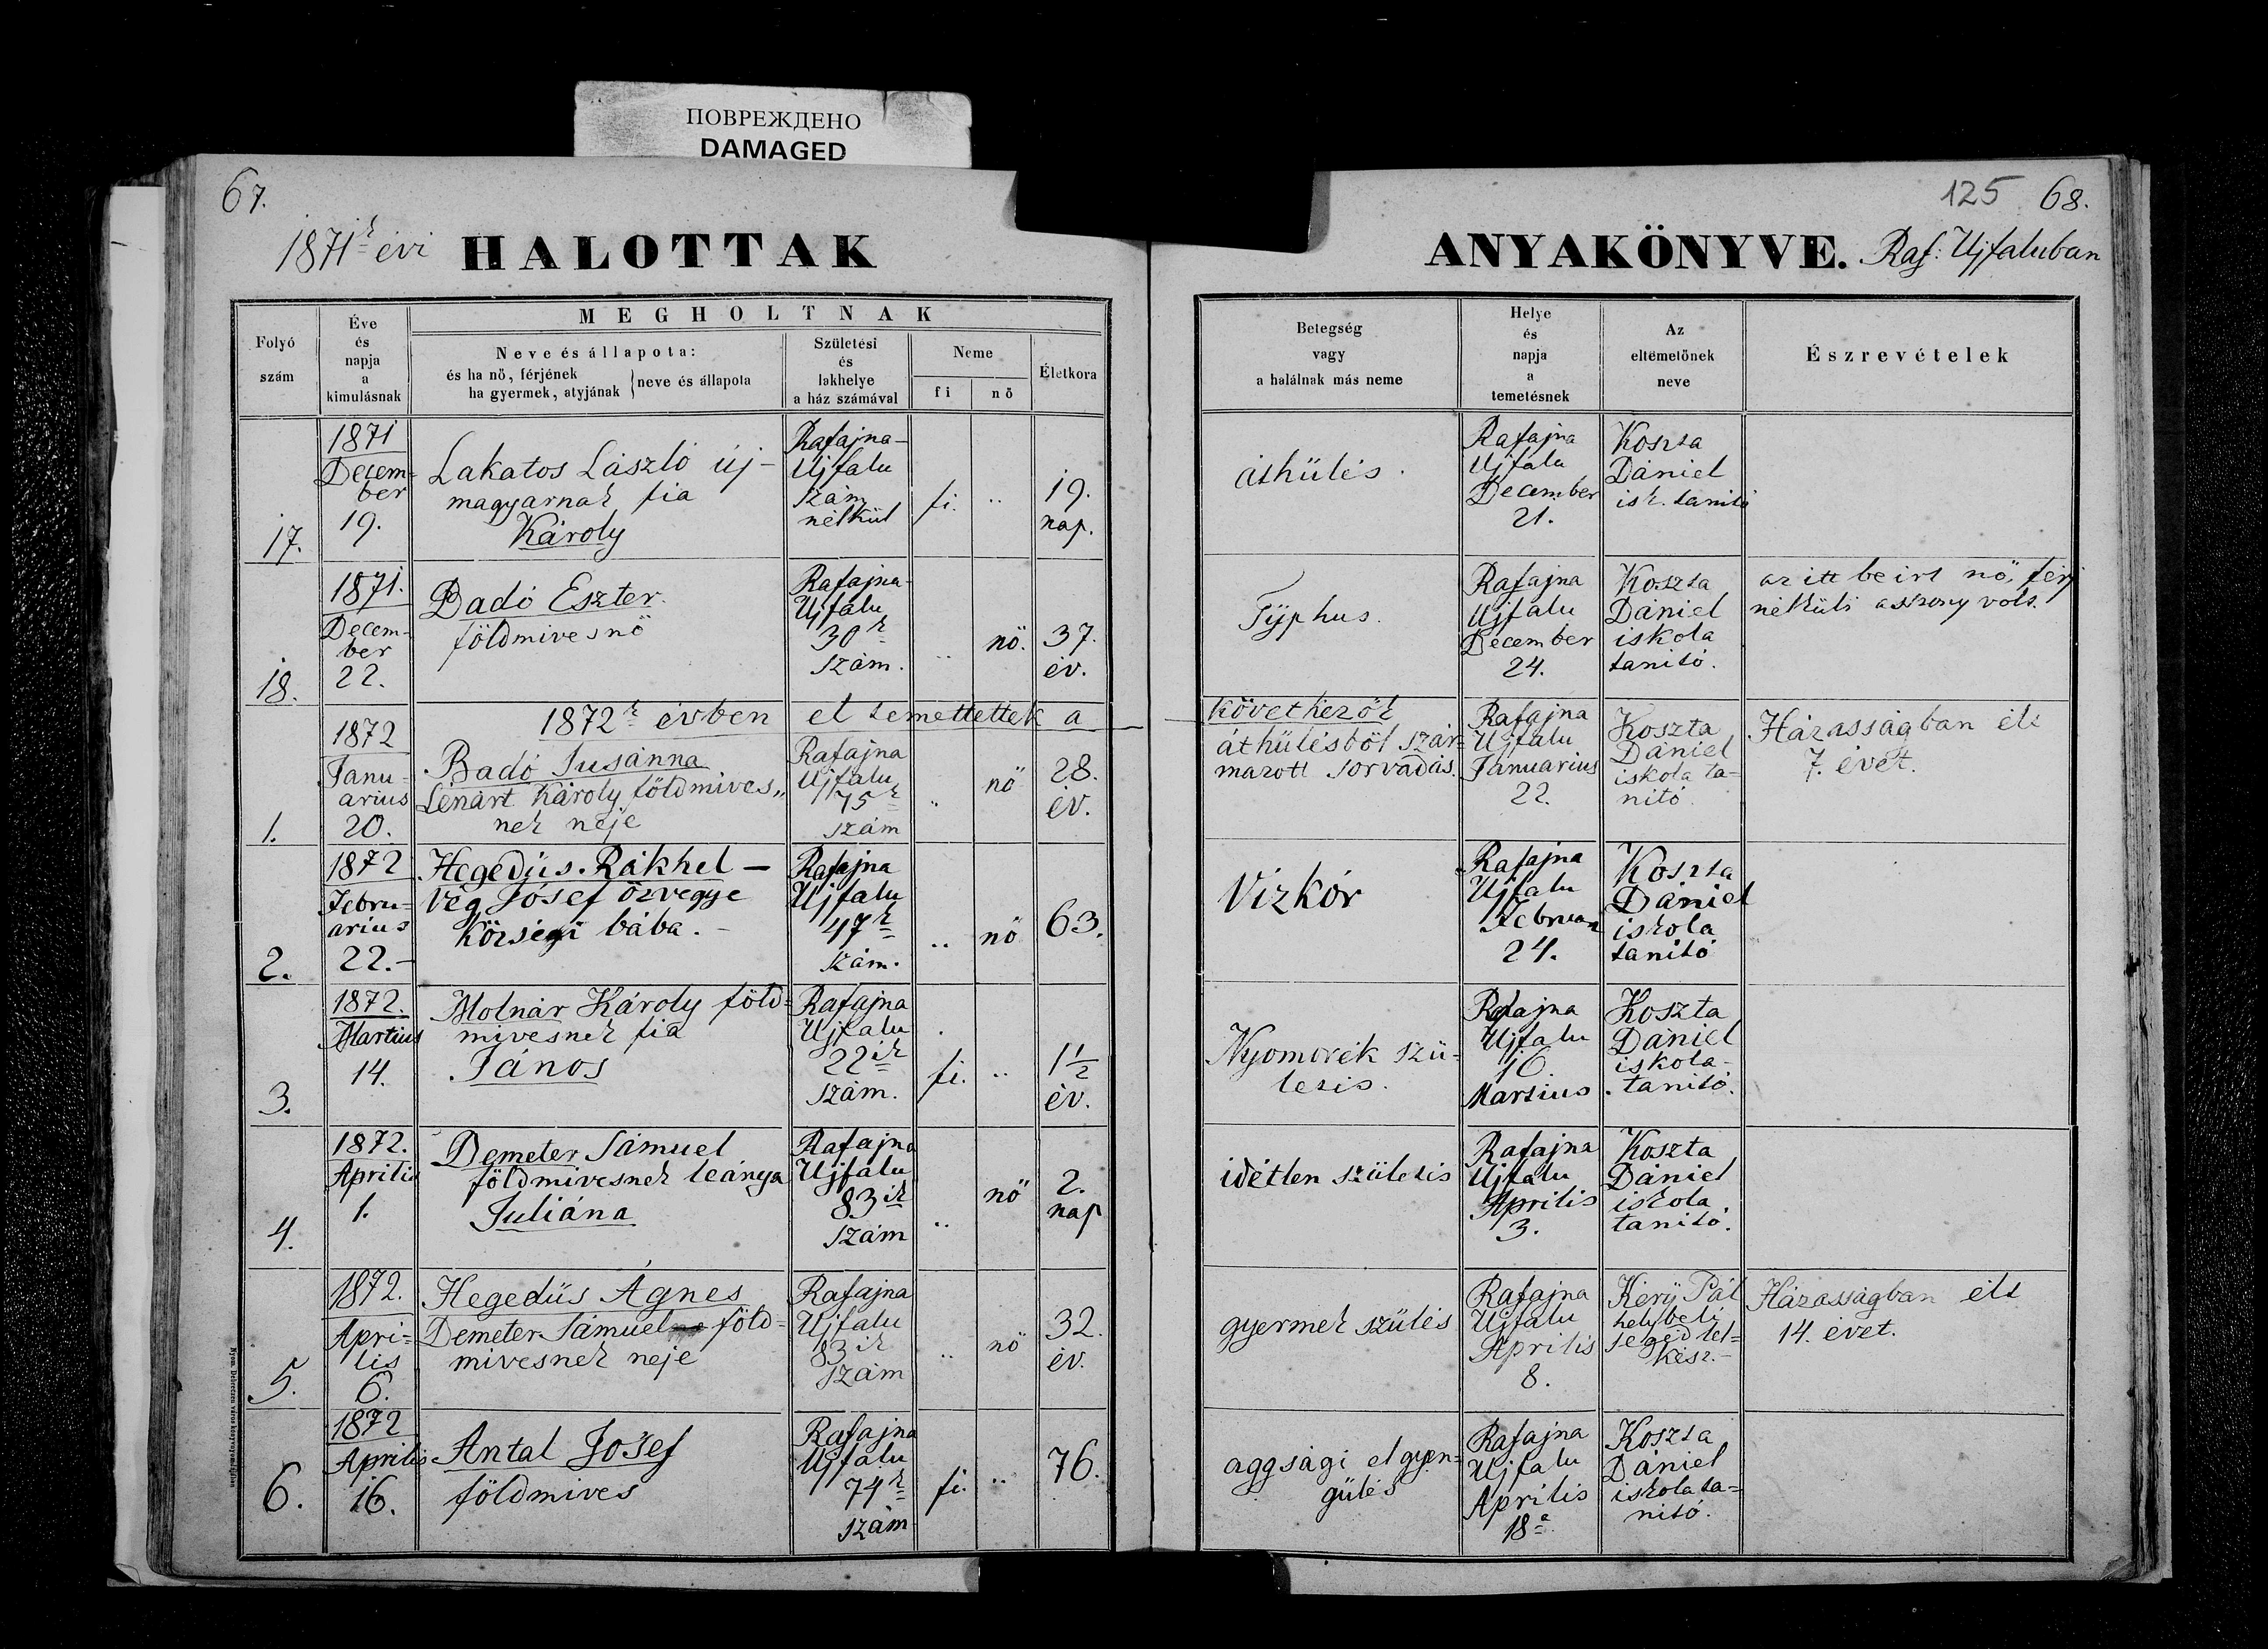 ПОВРЕЖДЕНО
DAMAGED
67.
125 68.
1871k évi HALOTTAK
ANYAKÖNYVE. Raf: Ujfaluban
Folyó
szám
Éve
és
napja
a
kimulásnak
MEGHOLTNAK
Neve és állapota:
és ha nő, férjének
ha gyermek, atyjának
neve és állapota
Születési
és
lakhelye
a ház számával
Neme
fi
nő
Életkora
Betegség
vagy
a halálnak más neme
Helye
és
napja
a
temetésnek
Az
eltemetőnek
neve
Észrevételek
17.
1871
Decem-
ber
19.
Lakatos László új-
magyarnak fia
Károly
Rafajna-
Ujfalu
szám
nélkül
fi.
..
19.
nap.
áthülés.
Rafajna
Ujfalu
December
21.
Koszta
Dániel
isk. tanító
18.
1871.
Decem-
ber
22.
Badó Eszter
földmivesnö
Rafajna-
Ujfalu
30k
szám.
..
nö.
37.
év.
Typhus.
Rafajna
Ujfalu
December
24.
Koszta
Dániel
iskola
tanító.
az itt beirt nö, férj
nélküli asszony volt.
1872k évben el temettettek a következök
1.
1872
Janu-
arius
20.
Badó Susánna
Lénárt Károly földmives„
nek neje
Rafajna
Ujfalu
75k
szám
..
nö
28.
év.
áthülésböl szár-
mazott sorvadás.
Rafajna
Ujfalu
Januarius
22.
Koszta
Dániel
iskola ta-
nitó.
Házasságban élt
7. évet.
2.
1872
Febru-
arius
22.-
Hegedüs Rákhel —
Vég Jósef özvegye
Községi bába. -
Rafajna
Ujfalu
47k
szám.
..
nö
63.
Vizkór
Rafajna
Ujfalu
Februar
24.
Koszta
Dániel
iskola
tanító
3.
1872.
Martius
14.
Molnár Károly föld-
mivesnek fia
János
Rafajna
Ujfalu
22ik
szám.
fi.
..
1½
év.
Nyomorék szü-
letés.
Rafajna
Ujfalu
16
Martius
Koszta
Dániel
iskola-
tanító.
4.
1872.
Aprilis
1.
Demeter Sámuel
földmivesnek leánya
Juliána
Rafajna
Ujfalu
83ik
szám
..
nö
2.
nap
idétlen születés
Rafajna
Ujfalu
Aprilis
3.
Koszta
Dániel
iskola
tanító.
5.
1872.
Apri-
lis
6.
Hegedüs Ágnes
Demeter Sámuel föld-
mivesnek neje
Rafajna
Ujfalu
83ik
szám
..
nö
32.
év.
gyermek szülés
Rafajna
Ujfalu
Aprilis
8.
Kéry Pál
helybeli
segéd lel-
kész.-
Házasságban élt
14. évet.
6.
1872
Aprilis
16.
Antal Josef
földmives
Rafajna
Ujfalu
74k
szám
fi.
..
76.
aggsági elgyen-
gülés
Rafajna
Ujfalu
Aprilis
18a
Koszta
Dániel
iskola ta-
nitó.